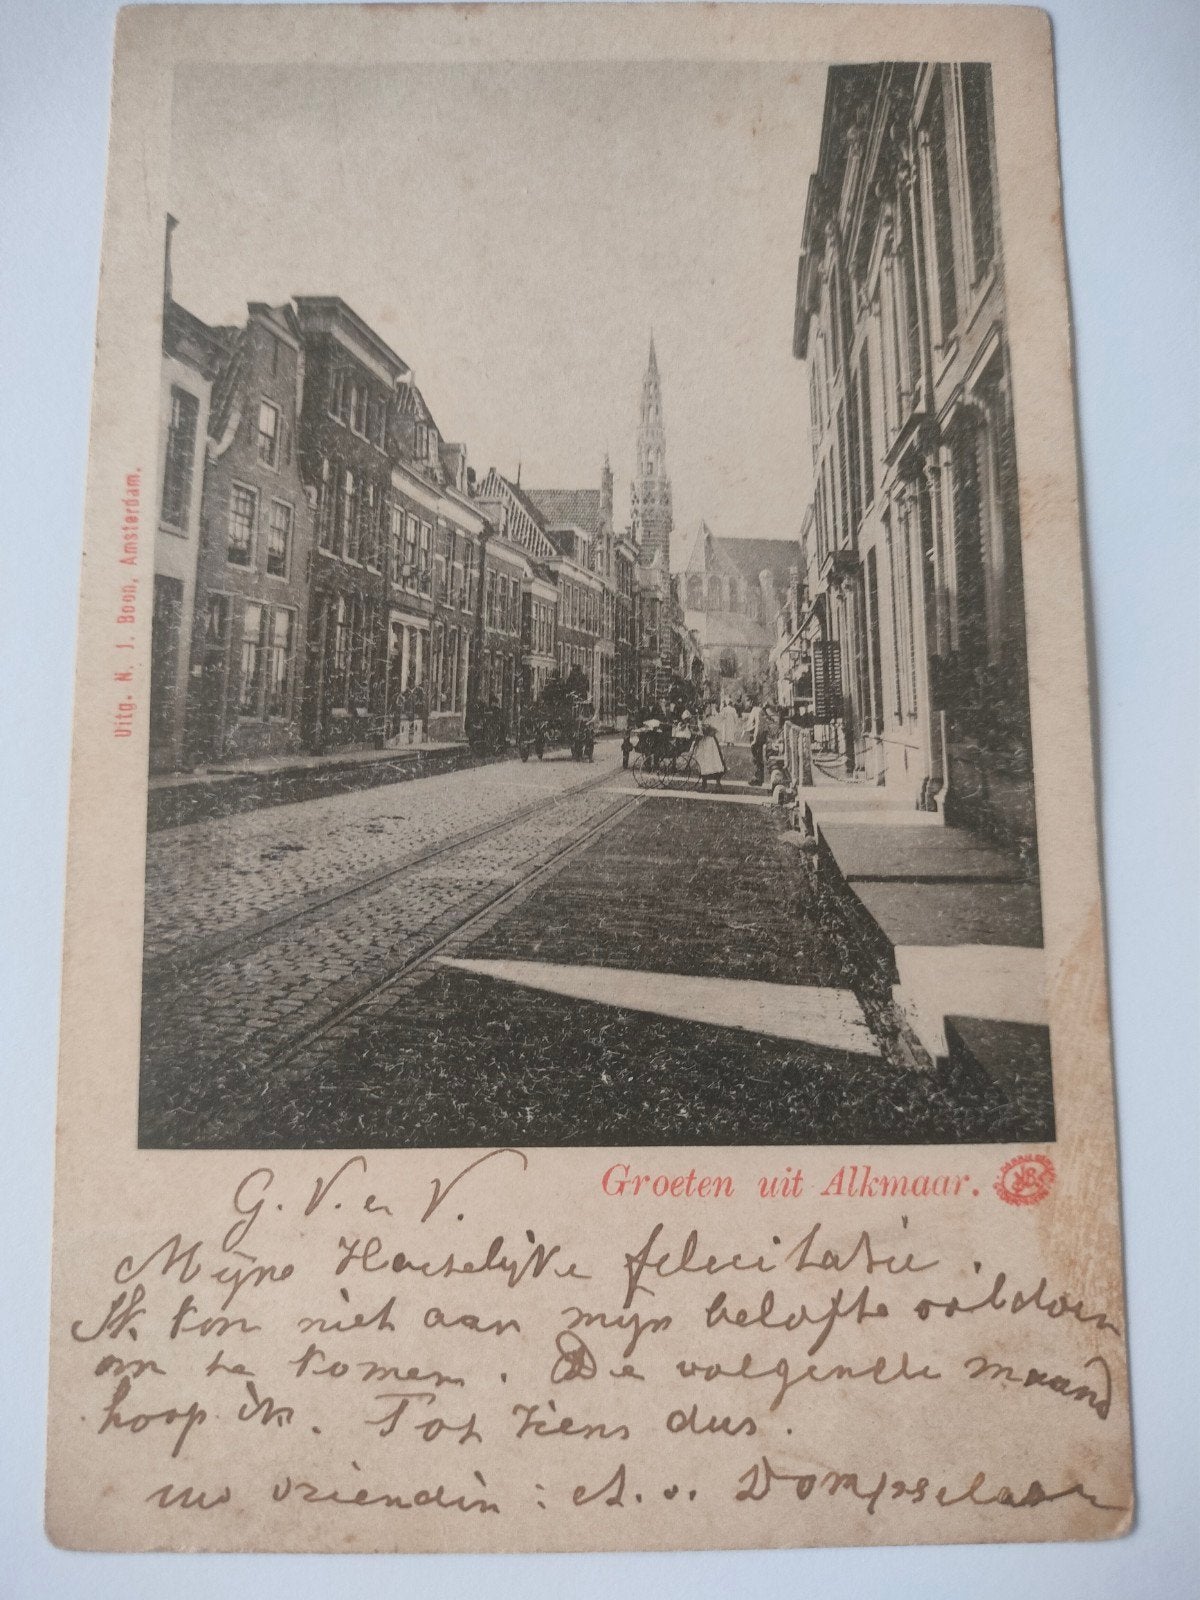 Uitg. N. J. Boon, Amsterdam.
Groeten uit Alkmaar.
G. V. en V.
Mijne Hartelijke felicitatie.
Ik kon niet aan mijn belofte voldoen
om te komen. De volgende maand
hoop ik. Tot ziens dus.
uw vriendin: A. v. Dompselaar